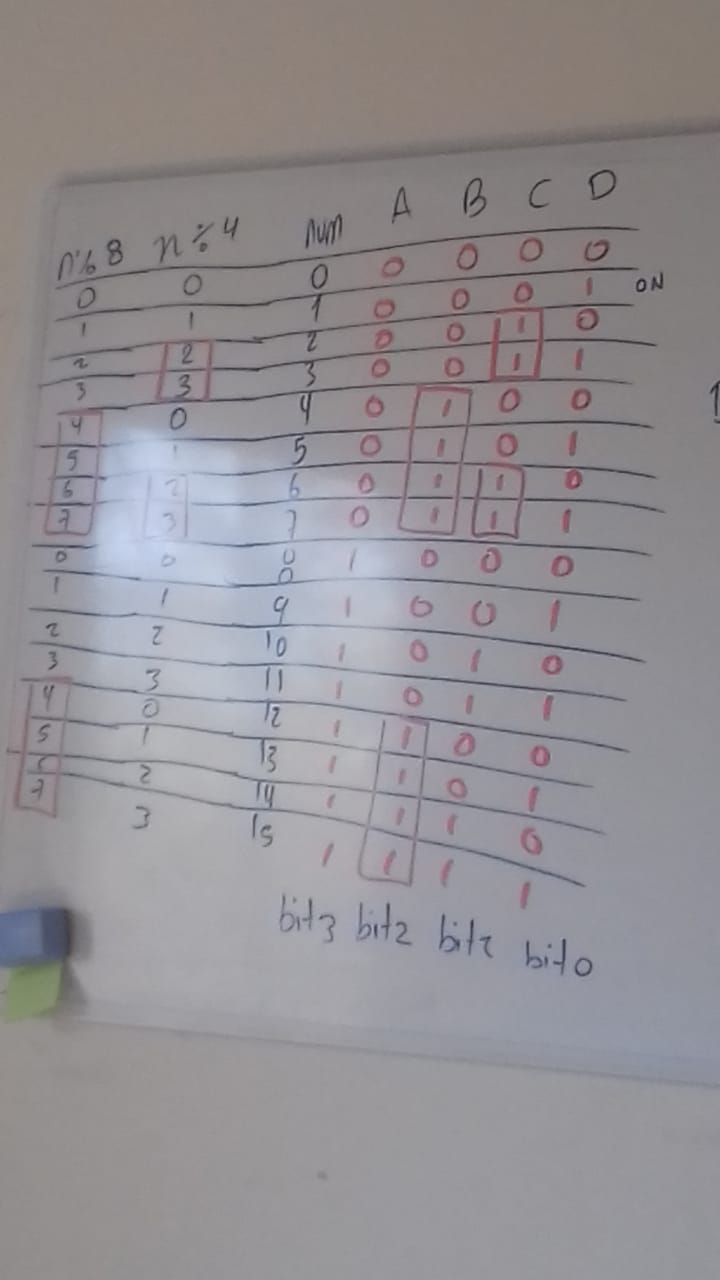 n%8 n%4 num A B C D
0 0 0 0 0 0 0
1 1 1 0 0 0 1 ON
2 2 2 0 0 1 0
3 3 3 0 0 1 1
4 0 4 0 1 0 0
5 1 5 0 1 0 1
6 2 6 0 1 1 0
7 3 7 0 1 1 1
0 0 8 1 0 0 0
1 1 9 1 0 0 1
2 2 10 1 0 1 0
3 3 11 1 0 1 1
4 0 12 1 1 0 0
5 1 13 1 1 0 1
2 14 1 1 1 0
7 3 15 1 1 1 1
bit3 bit2 bit1 bit0